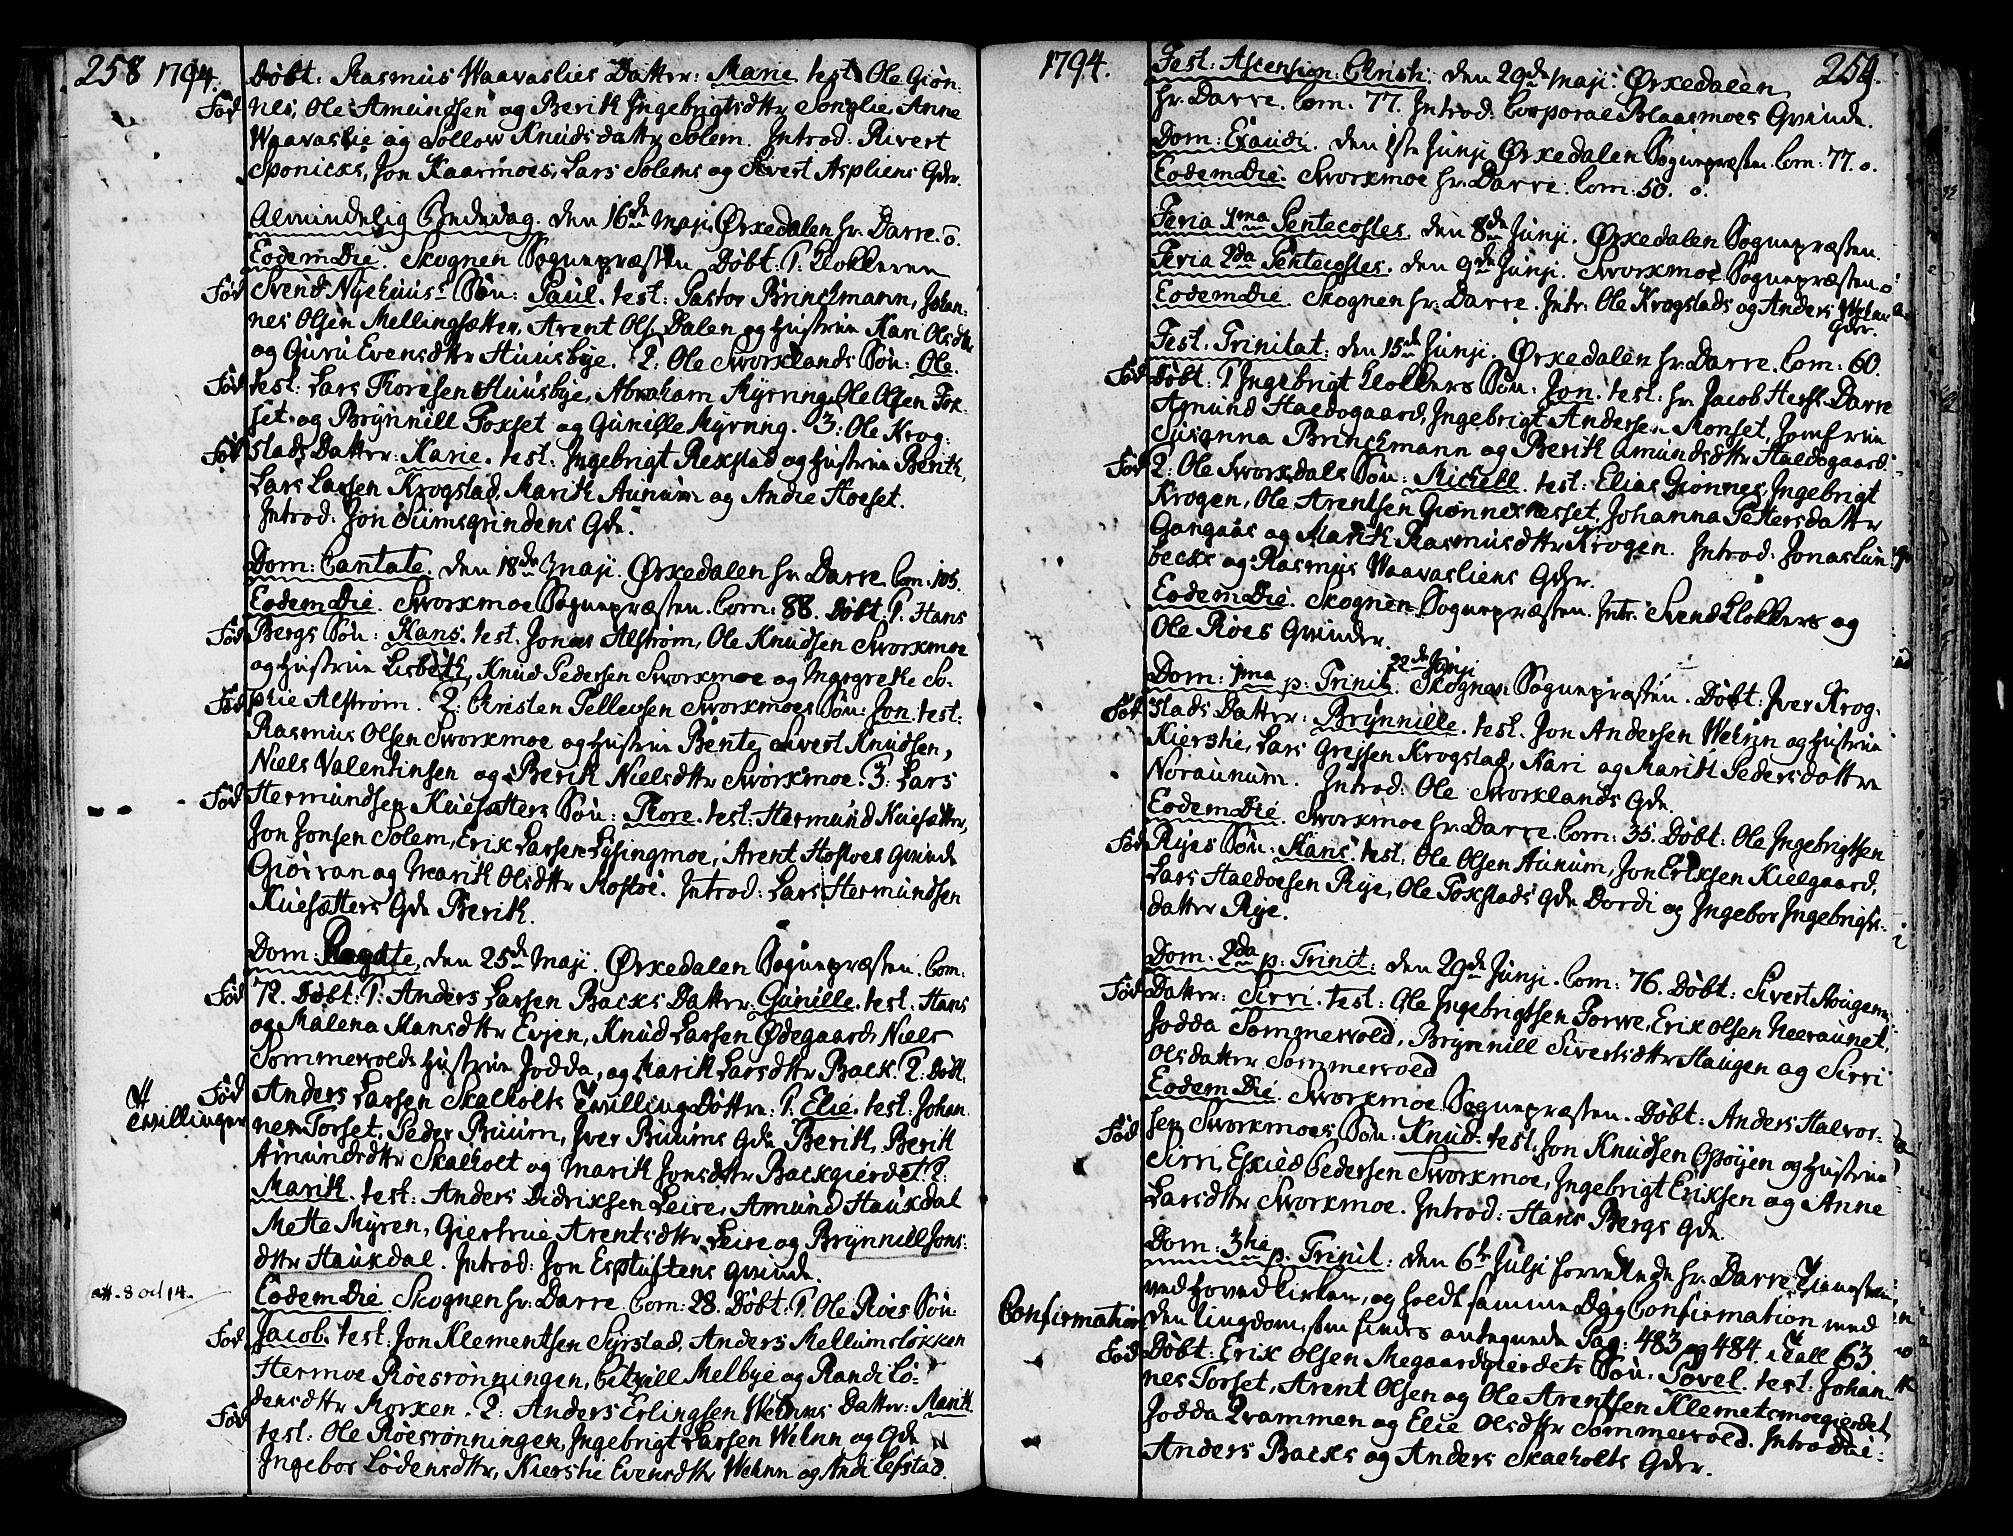 258 1794.
Døbt: Rasmus Waavaslies Datter: Marie test: Ole Giøn-
Fød nes, Ole Amundsen og Berith Ingebrigtsdttr Songlie, Anne
Waavaslie og Sollow Knudsdattr Solem. Introd: Sivert
Sponicks, Jon Kaarmoes, Lars Solems og Sivert Aspliens Qdr.
Almindelig Bededag. den 16de Maji. Ørkedalen hr. Darre. o.
Eodem Die. Skognen Sognepræsten Døbt: 1. Klokkeren
Fød Svend Nyehuus's Søn: Paul. test: Pastor Brinckmann, Johan-
nes Olsen Mellingsætter, Arent Ols: Dalen og Hustrue Kari Olsdttr
og Guru Evensdttr Huusbye. 2: Ole Sworklands Søn: Ole.
Fød test: Lars Thoresen Huusbye, Abraham Myrning, Ole Olsen Fox-
set og Brynnill Foxset og Gunille Myrning. 3: Ole Krog-
Fød stads Datter: Karie. test: Ingebrigt Rekstad og Hustrue Berith,
Lars Larsen Krogstad, Marith Aunum og Andie Hoeset.
Introd: Jon Sumsgrindens Qde.
Dom: Cantate. den 18de Maji. Ørkedalen hr. Darre Com: 105.
Eodem Die. Sworkmoe Sognepræsten. Com: 88. Døbt: 1. Hans
Fød Bergs Søn: Hans. test: Jonas Alstrøm, Ole Knudsen Sworkmoe
og Hustrue Lisbeth, Knud Pedersen Sworkmoe og Ingegrethe So-
Fød phie Alstrøm. 2: Christen Tellevsen Sworkmoes Søn: Jon. test:
Rasmus Olsen Sworkmoe og Hustrue Bente, Sivert Knudsen,
Niels Valentinsen og Berith Nielsdttr Sworkmoe. 3: Lars
Fød Hermundsen Kuesætters Søn: Thore. test: Hermund Kuesætter,
Jon Jonsen Solem, Erik Larsen Lysingmoe, Arent Hostoes Qvinde
Giørran og Marith Olsdttr Hostoe. Introd: Lars Hermundsen
Kuesætters Qde Berith.
Dom: Rogate, den 25de Maji. Ørkedalen Sognepræsten. Com:
Fød 72. Døbt: 1. Anders Larsen Backs Datter: Gunille. test: Hans
og Malena Hansdttr Evjen, Knud Larsen Ødegaard, Niels
Sommervolds Hustrue Jodda, og Marith Larsdttr Back. 2: Døbt.
Fød Anders Larsen Skalholts Tvilling Døttre: 1. Elie. test: Johan
Tvillinger nes Torset, Peder Buum, Iver Buums Qde Berith, Berith
Amundsdttr Skalholt og Marith Jonsdttr Backgierdet. 2:
Marith. test: Anders Didriksen Leire, Amund Haukdal
Mette Myren, Giertrue Arentsdttr Leire og Brynnill Jons-
dttr Haukdal. Introd: Jon Espluftens Qvinde.
att. 8 oct 14. Eodem Die Skognen hr: Darre Com: 28. Døbt: 1. Ole Roes Søn:
Fød Jacob. test: Jon Klementsen Syrstad, Anders Mellumsløkken
Hermoe Roesrønningen, Citzill Melbye og Randi Lo-
densdttr Morken. 2: Anders Erlingsen Wehns Datter: Marith
Fød test: Ole Roesrønningen, Ingebrigt Larsen Wehn og Qde
Ingebor Lodensdttr, Kierstie Evensdttr Wehnn og Andi Lefstad.
1794. 259.
Fest: Ascension: Christi: den 29de Maji. Ørkedalen
hr. Darre. Com: 77. Introd: Corporae Blaasmoes Qvinde.
Dom: Exaudi. den 1ste Junji Ørkedalen Sognepræsten. Com: 77. o.
Eodem Die. Sworkmoe hr. Darre: Com: 50. o.
Feria 1ma Pentecostes. den 8de Junji. Ørkedalen Sognepræsten.
Feria 2da Pentecostes. den 9de Junji. Sworkmoe Sognepræsten. o
Eodem Die. Skognen hr: Darre. Intr: Ole Krogstads og Anders Wehns
Qdr.
Fest. Trinitat: den 15de Junji. Ørkedalen hr. Darre. Com: 60.
Fød Døbt: 1 Ingebrigt Klokkers Søn: Jon. test: hr. Jacob Hersl. Darre
Amund Haldogaard, Ingebrigt Andersen Monset, Jomfrue
Susanna Brinckmann og Berith Amundsdttr Haldogaard.
Fød 2: Ole Sworkdals Søn: Mickell. test: Elias Gionnes, Ingebrigt
Krogen, Ole Arentsen Giønnesnesset, Johanna Pettersdatter
Gangaas og Marith Rasmusdttr Krogen. Introd: Jonas Lun-
becks og Rasmus Waavasliens Qder.
Eodem Die. Skognen Sognepræsten. Intr: Svend Klokkers og
Ole Roes Qvinder.
Dom: 1ma p. Trinit. 22de Junji Skognen Sognepræsten. Døbt: Iver Krog-
Fød stads Datter: Brynnille. test. Jon Andersen Wehn og Hustrue
Kierstie, Lars Greesen Krogstad, Kari og Marith Pedersdøttre
Noraunum. Introd: Ole Sworklands Qde.
Eodem Die. Sworkmoe hr. Darre. Com: 35. Døbt: Ole Ingebrigtsen
Fød Ryes Søn: Hans. test: Ole Olsen Aunum, Jon Eriksen Kielgaard,
Lars Haldoesen Rye, Ole Foxstads Qde Dordi og Ingebor Ingebrigts-
datter Rye.
Dom. 2da p. Trinit: den 29de Junji. Com: 76. Døbt: Sivert Hougens
Fød Datter: Sirri. test: Ole Ingebrigtsen Torwe, Erik Olsen Neeraunet,
Jodda Sommervold, Brynnill Sivertsdttr Haugen og Sirri
Olsdatter Sommervold
Eodem Die. Sworkmoe Sognepræsten. Døbt: Anders Halvor-
Fød sen Sworkmoes Søn: Knud: test. Jon Knudsen Opøyen og Hustrue
Sirri, Eskild Pedersen Sworkmoe, Ingebrigt Eriksen og Anne
Larsdttr Sworkmoe. Introd: Hans Bergs Qde.
Dom: 3tia p. Trinit: den 6te Julji forrettede hr. Darre Tienesten
ved hovedkirken, og holdt samme Dag Confirmation med
Confirmation den Ungdom, som findes antegnede Pag: 483 og 484. i Tall 63
Fød Døbt: Erik Olsen Megaardgierdets Søn: Povel. test: Johan-
nes Torset, Arent Olsen og Ole Arentsen Klemetsmoegierdet,
Jodda Prammen og Elie Olsdttr Sommervold. Introd:
Anders Backs og Anders Skalholts Qder.